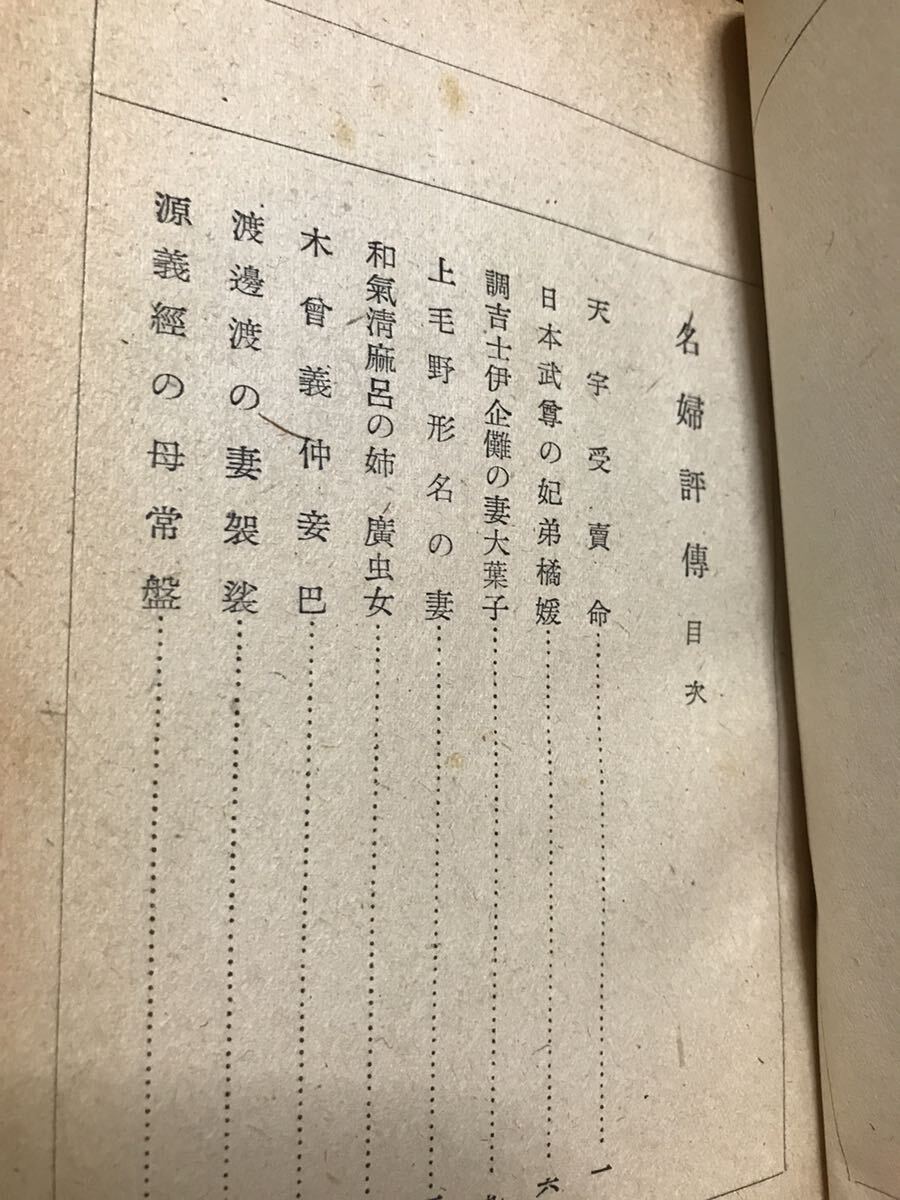 名婦評傳 目次
天宇受賣命……一
日本武尊の妃弟橘媛……六
調吉士伊企儺の妻大葉子……
上毛野形名の妻……
和氣清麻呂の姉 廣虫女……
木曾義仲妾巴……
渡邊渡の妻袈裟……
源義經の母常盤……